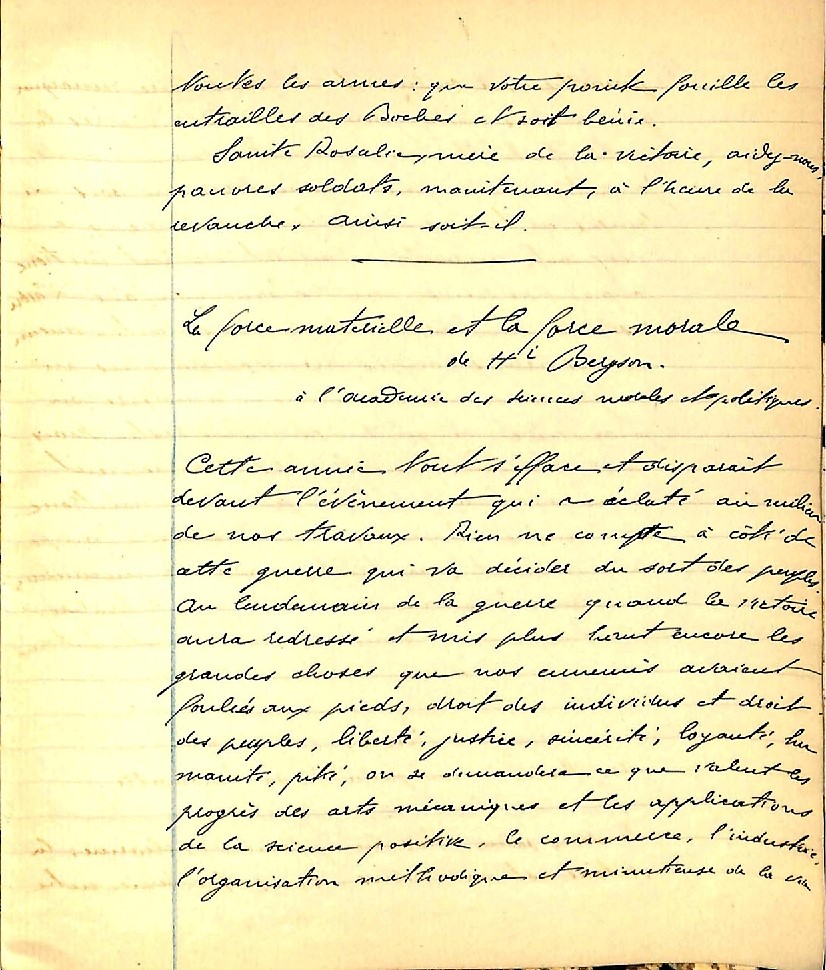 toutes les armes : que votre pointe fouille les
entrailles des Boches et soit bénie.
Sainte Rosalie, mère de la victoire, aidez-nous,
pauvres soldats, maintenant, à l'heure de la
revanche. Ainsi soit-il.
La force matérielle et la force morale
de Hi Bergson.
à l'académie des sciences morales et politiques.
Cette année tout s'efface et disparait
devant l'évènement qui a éclaté au milieu
de nos travaux. Rien ne compte à côté de
cette guerre qui va décider du sort des peuples.
Au lendemain de la guerre quand la victoire
aura redressé et mis plus haut encore les
grandes choses que nos ennemis avaient
foulées aux pieds, droit des individus et droit
des peuples, liberté, justice, sincérité, loyauté, hu
manité, pitié, on se demandera ce que valent les
progrès des arts mécaniques et les applications
de la science positive, le commerce, l'industrie,
l'organisation méthodique et minutieuse de la vie